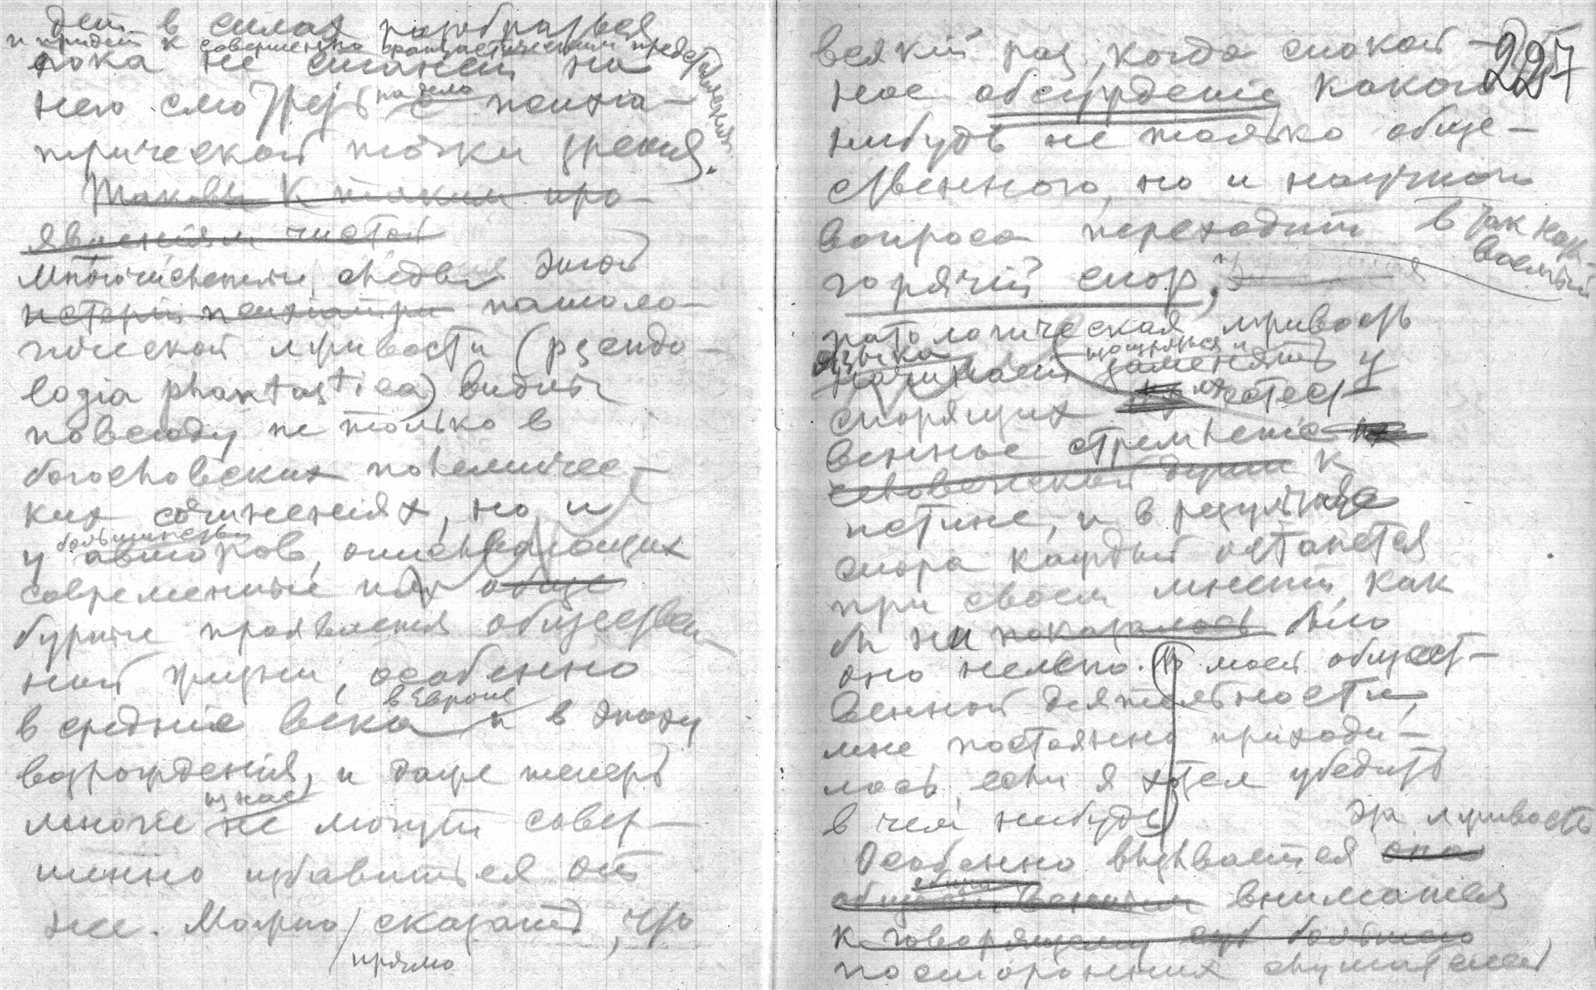 дет в силах разобраться
и придет к совершенно фантастическим представлениям
пока не станет на
него смотреть на дело с психиа-
трической точки зрения.
Таковы К таким про-
явлениям чистой
Многочисленны следы этой
истерии психиатри патоло-
гической лживости (pseudo-
logia phantastica) видны
повсюду не только в
богословских полемичес-
ких сочинениях, но и
у большинства авторов, описывающих
современные им обще
бурные проявления обществен-
ной жизни, особенно
в средние века в Европе и в эпоху
возрождения, и даже теперь
многие из нас не могут совер-
шенно избавиться от
нее. Можно прямо сказать, что
227
всякий раз, когда спокой-
ное обсуждение какого
нибудь не только обще-
ственного, но и научного
вопроса переходит в так наз
горячий спор,
патологическая лживость
языка
начинает заменять у
спорящих их естест-
венное стремление
человеческой души к
истине, и в результате
спора каждый останется
при своем мнении, как
бы ни показалось было
оно нелепо. В моей общест-
венной деятельности,
мне постоянно приходи-
лось, если я хотел убедить
в чем нибудь
Эта лживость
Особенно вызывается она
общественным вниманием
к говорящему большего
посторонних слушателей